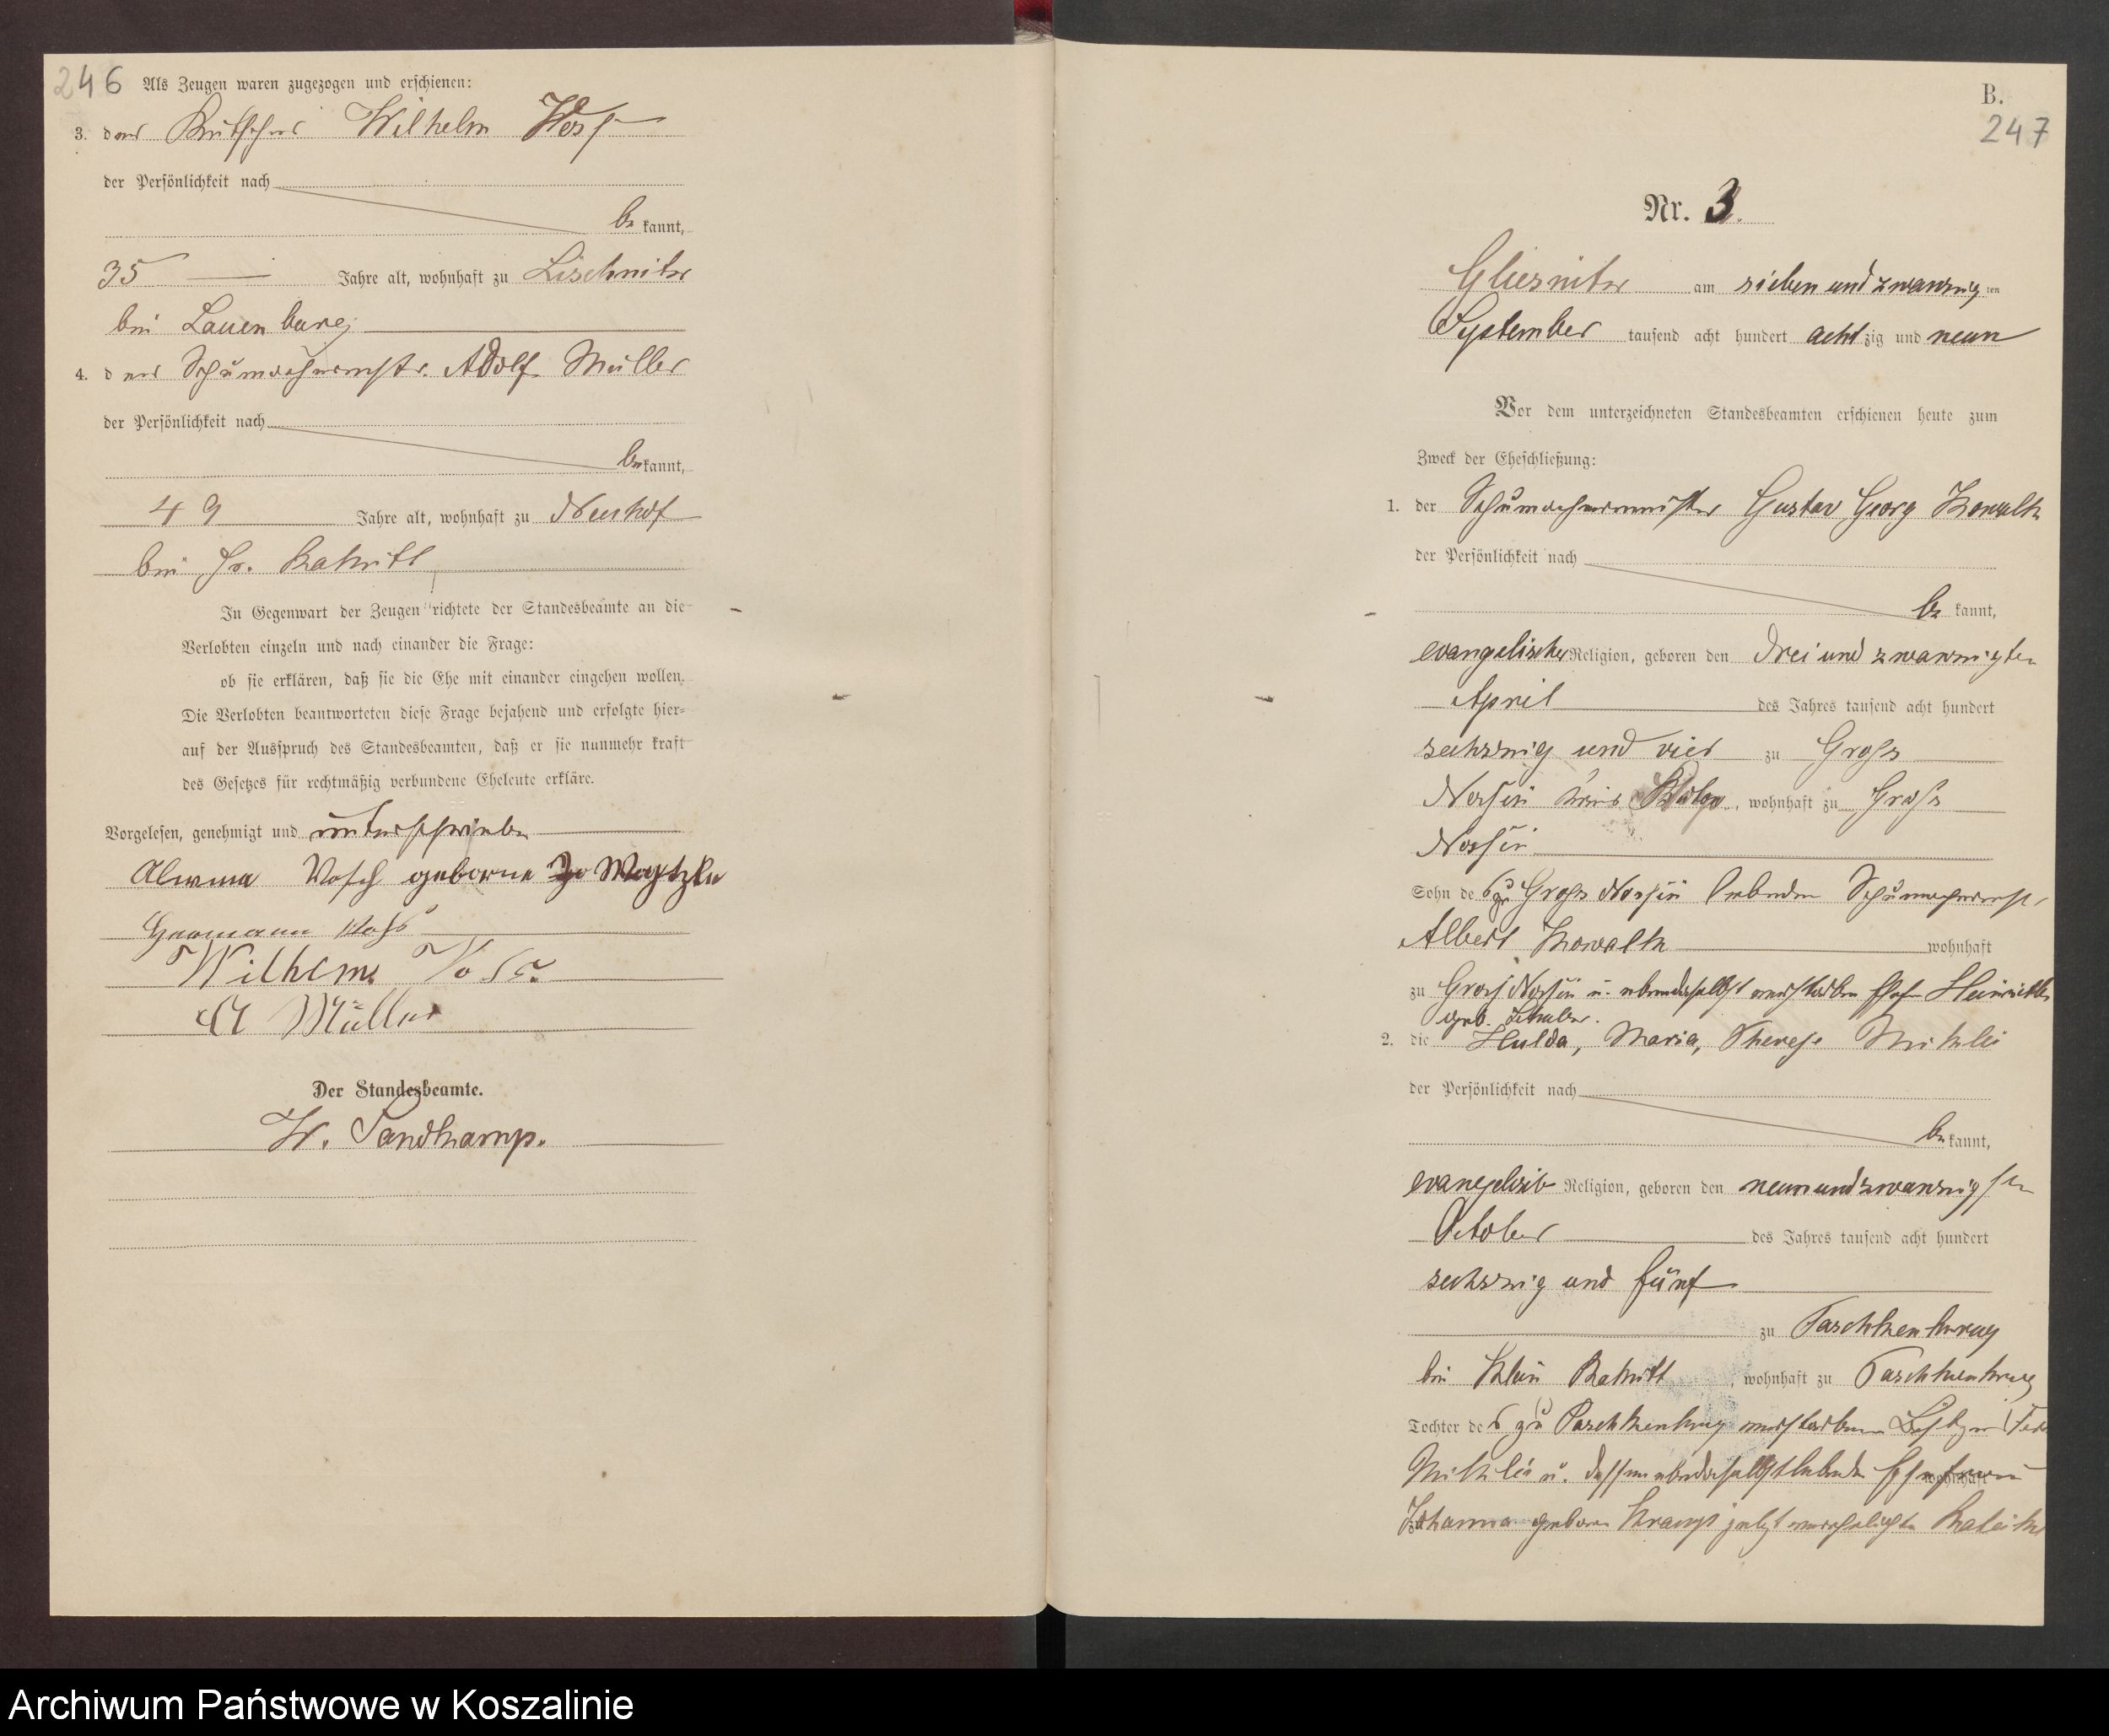 246 Als Zeugen waren zugezogen und erschienen:
3. der Kutscher Wilhelm Voss
der Persönlichkeit nach
be kannt,
35 Jahre alt, wohnhaft zu Lischnitz
bei Lauenburg
4. der Schumachermstr. Adolf Müller
der Persönlichkeit nach
be kannt,
49 Jahre alt, wohnhaft zu Neuhof
bei Gr. Rakitt
In Gegenwart der Zeugen richtete der Standesbeamte an die
Verlobten einzeln und nach einander die Frage:
ob sie erklären, daß sie die Ehe mit einander eingehen wollen.
Die Verlobten beantworteten diese Frage bejahend und erfolgte hier-
auf der Ausspruch des Standesbeamten, daß er sie nunmehr kraft
des Gesetzes für rechtmäßig verbundene Eheleute erkläre.
Vorgelesen, genehmigt und unterschrieben
geborne
Hermann Voß
Wilhelm Voss
A Müller
Der Standesbeamte.
W. Sandkamp.
B.
247
Nr. 3.
Gliesnitz am sieben und zwanzig ten
September tausend acht hundert acht zig und neun
Vor dem unterzeichneten Standesbeamten erschienen heute zum
Zweck der Eheschließung:
1. der Schumachermeister Gustav Georg Kowalk
der Persönlichkeit nach
be kannt,
evangelischer Religion, geboren den drei und zwanzigsten
April des Jahres tausend acht hundert
sechszig und vier zu Gross
Nossin Kreis Stolp, wohnhaft zu Gross
Nossin
Sohn des zu Gross Nossin lebenden Schumachermst.
Albert Kowalk wohnhaft
zu Gross Nossin u. ebendaselbst verstorben Ehefr. Heinriette
geb.
2. die Hulda, Maria, Therese Miklei
der Persönlichkeit nach
be kannt,
evangelisch Religion, geboren den neun und zwanzigsten
October des Jahres tausend acht hundert
sechszig und fünf
zu Paschkenkrug
bei Klein Rakitt, wohnhaft zu Paschkenkrug
Tochter des zu Paschkenkrug verstorbenen
Miklei u. dessen ebendaselbst lebende Ehefrau wohnhaft
Johanna geboren Kramp jetzt verehelichte
Archiwum Państwowe w Koszalinie